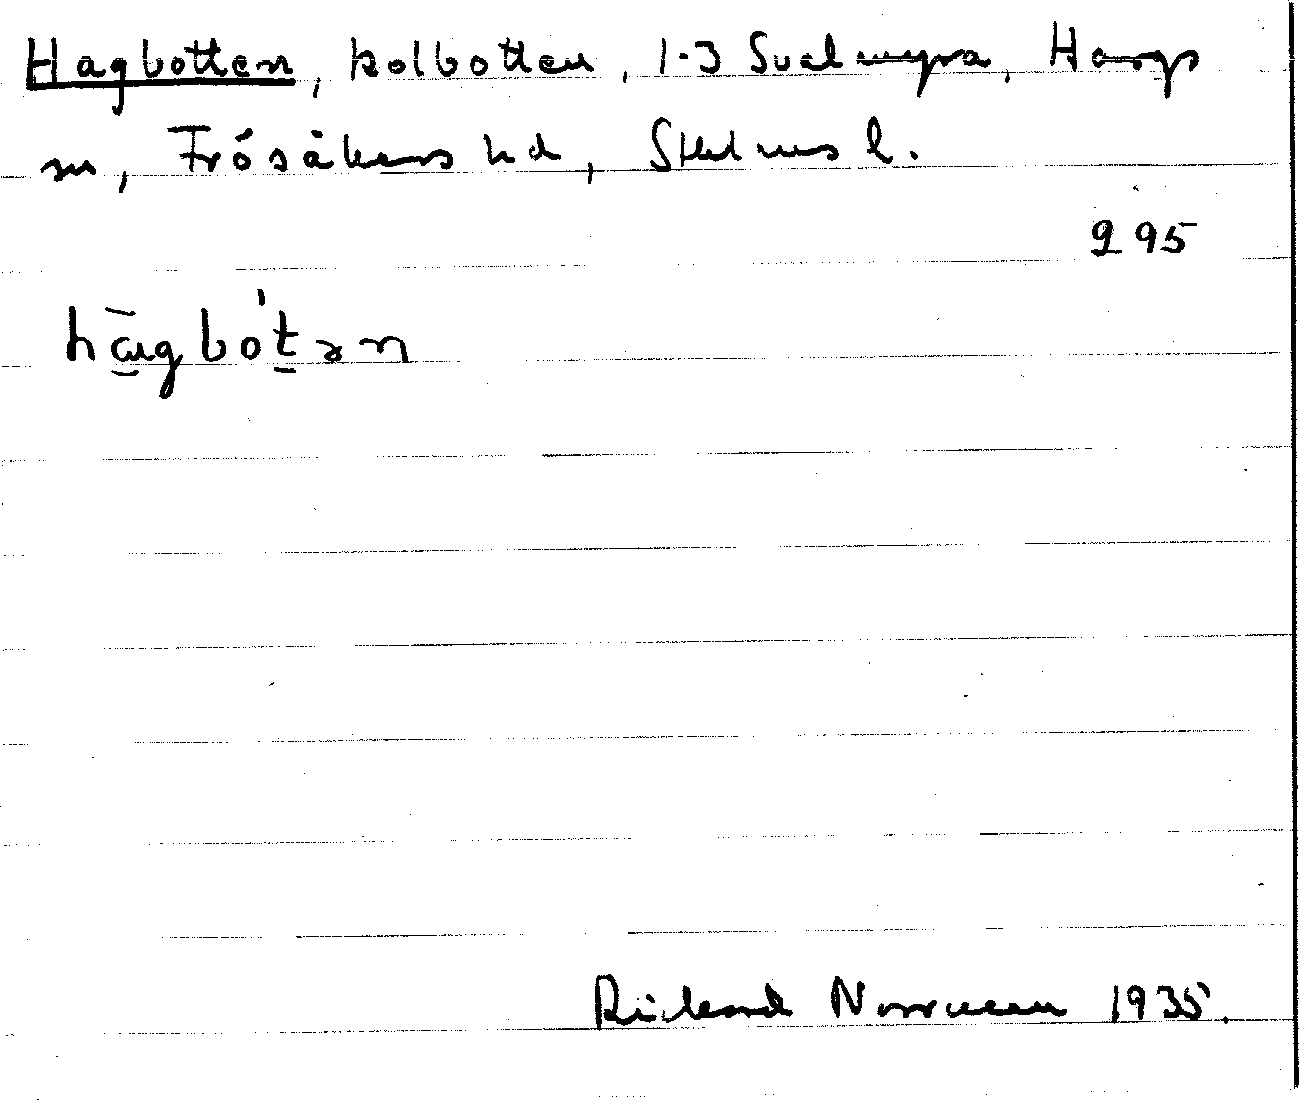 Hagbotten, kolbotten, 1-3 Svalmyra, Hargs
sn, Frösåkers hd, Sthlms l.
295
hāgbòt̠ən
Rickard Norrman 1935.